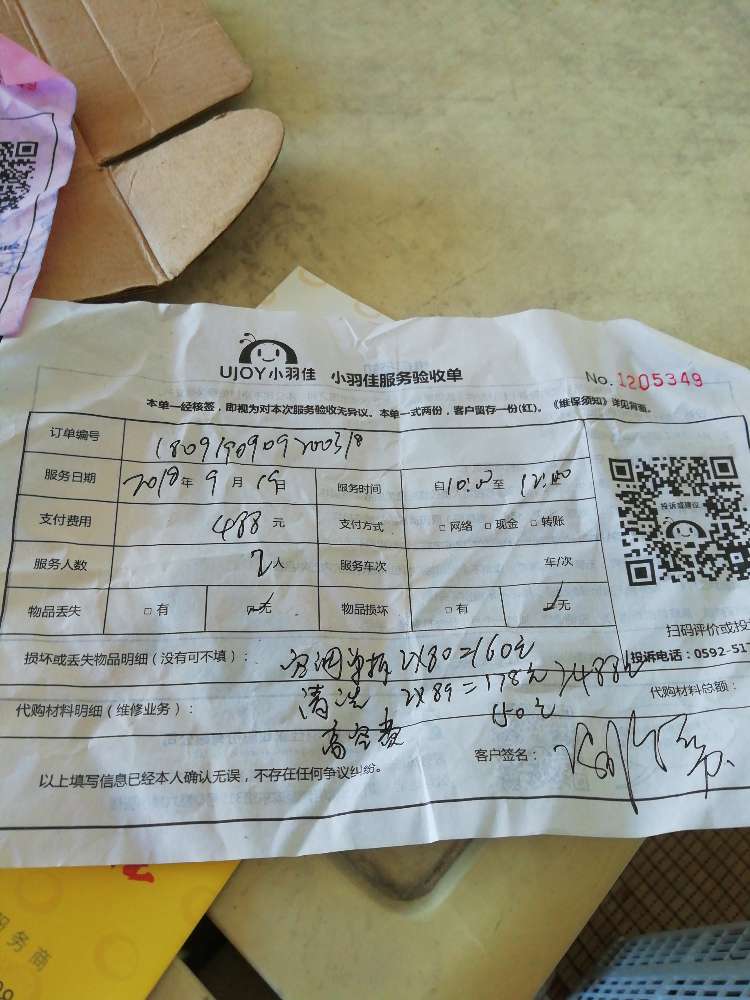 UJOY小羽佳 小羽佳服务验收单 No. 1205349
本单一经核签，即视为对本次服务验收无异议。本单一式两份，客户留存一份(红)。《维保须知》详见背面。
订单编号
服务日期 2018年 9月 19日 服务时间 自10:00至 12:00
支付费用 488元 支付方式 □网络 □现金 □转账
服务人数 2人 服务车次 车/次
物品丢失 □有 □无 物品损坏 □有 □无
投诉或建议
扫码评价或投
投诉电话：0592-517
损坏或丢失物品明细（没有可不填）： 空调单拆 2X80=160元
清洗 2X89=178元 488元
代购材料明细（维修业务）： 代购材料总额：
高空费 150元
客户签名：
以上填写信息已经本人确认无误，不存在任何争议纠纷。
服务商